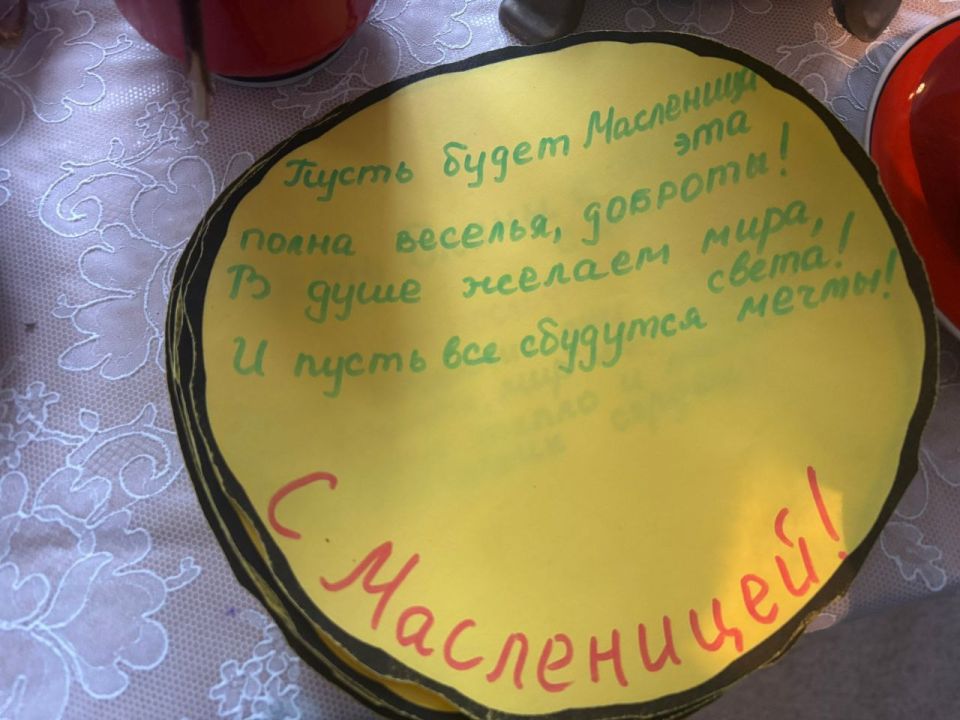 Пусть будет Масленица
эта
полна веселья, доброты!
В душе желаем мира,
света!
И пусть все сбудутся мечты!
С Масленицей!